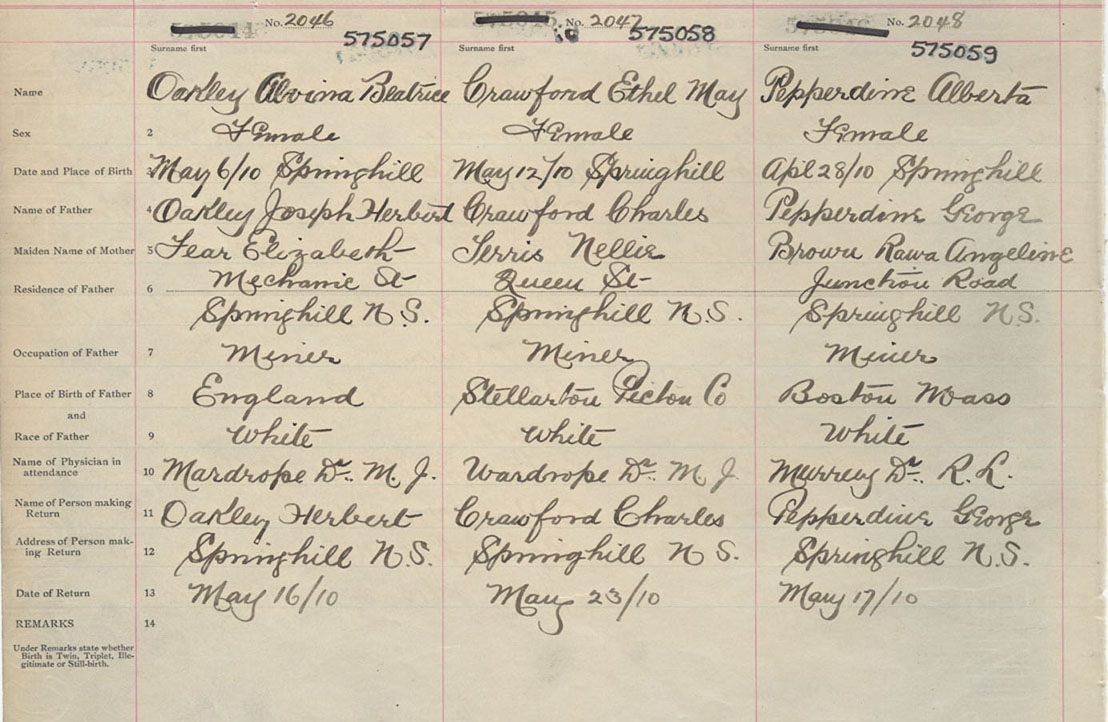 No. 2046 No. 2047 No. 2048
575057 575058 575059
Surname first Surname first Surname first
Name Oakley Alvina Beatrice Crawford Ethel May Pepperdine Alberta
Sex 2 Female Female Female
Date and Place of Birth 3 May 6/10 Springhill May 12/10 Springhill Apl 28/10 Springhill
Name of Father 4 Oakley Joseph Herbert Crawford Charles Pepperdine George
Maiden Name of Mother 5 Fear Elizabeth Nellie Brown Angeline
Mechanic St Queen St Junction Road
Residence of Father 6
Springhill N.S. Springhill N.S. Springhill N.S.
Occupation of Father 7 Miner Miner Miner
Place of Birth of Father 8 England Stellarton Pictou Co Boston Mass
and
Race of Father 9 White White White
Name of Physician in
attendance 10 Wardrope Dr. M. J. Wardrope Dr. M J Murray Dr. R. L.
Name of Person making
Return 11 Oakley Herbert Crawford Charles Pepperdine George
Address of Person mak-
ing Return 12 Springhill N.S. Springhill N S. Springhill N.S.
Date of Return 13 May 16/10 May 23/10 May 17/10
REMARKS 14
Under Remarks state whether
Birth is Twin, Triplet, Ille-
gitimate or Still-birth.